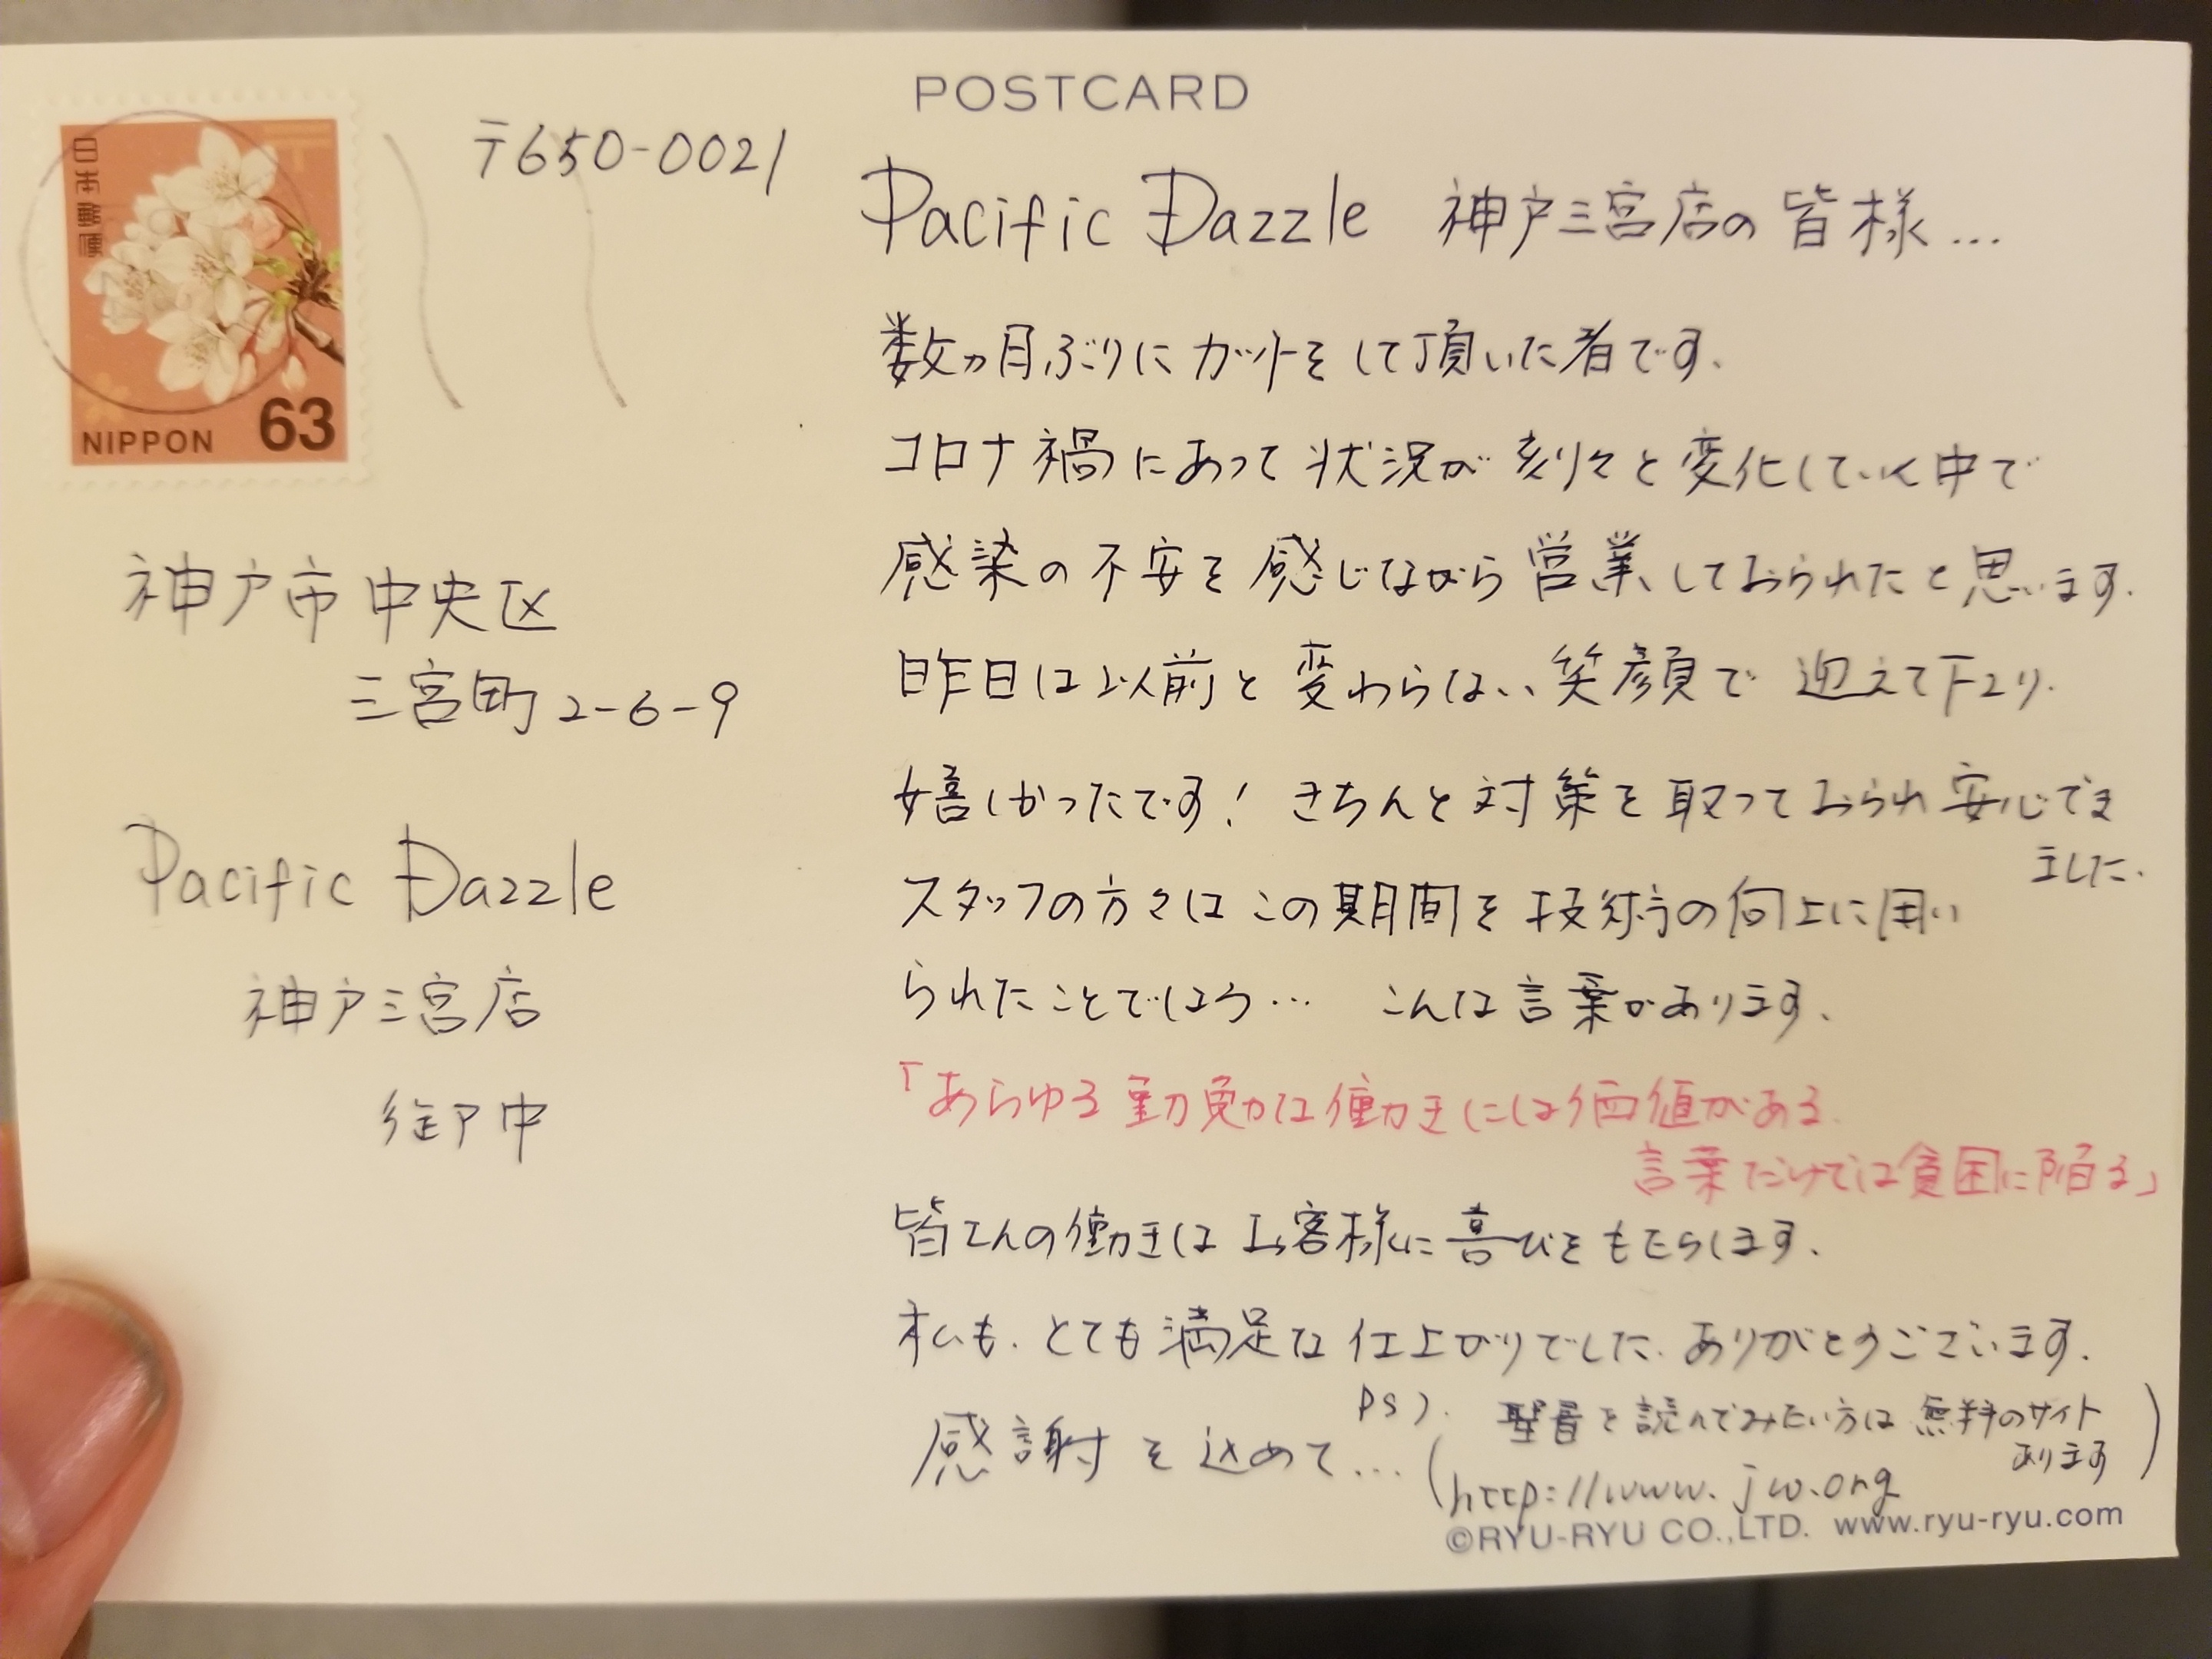 POSTCARD
日本郵便
NIPPON 63
〒650-0021
神戸市中央区
三宮町2-6-9
Pacific Dazzle
神戸三宮店
御中
Pacific Dazzle 神戸三宮店の皆様…
数ヵ月ぶりにカットをして頂いた者です.
コロナ禍にあって状況が刻々と変化していく中で
感染の不安を感じながら営業しておられたと思います.
昨日は以前と変わらない笑顔で迎えて下さり.
嬉しかったです! きちんと対策を取っておられ安心でき
ました.
スタッフの方々はこの期間を技術の向上に用い
られたことでしょう… こんな言葉があります.
「あらゆる勤勉な働きには価値がある.
言葉だけでは貧困に陥る」
皆さんの働きはお客様に喜びをもたらします.
私も.とても満足な仕上がりでした.ありがとうございます.
感謝を込めて…
PS). 聖書を読んでみたい方は無料のサイト
あります
(http://www.jw.org)
©RYU-RYU CO.,LTD. www.ryu-ryu.com